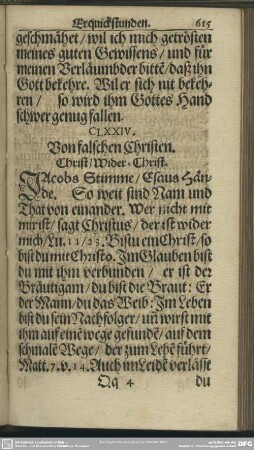 Erquickstunden. 615
geschmähet / wil ich mich getrösten
meines guten Gewissens / und für
meinen Verläumbder bittē / daß ihn
Gott bekehre. Wil er sich nit bekeh-
ren / so wird ihm Gottes Hand
schwer genug fallen.
CLXXIV.
Von falschen Christen.
Christ / Wider-Christ.
JAcobs Stimme / Esaus Hän-
de. So weit sind Nam und
That von einander. Wer nicht mit
mir ist / sagt Christus / der ist wider
mich / Lu. 11 / 23. Bistu ein Christ / so
bist du mit Christo. Im Glauben bist
du mit ihm verbunden / er ist der
Bräutigam / du bist die Braut: Er
der Mann / du das Weib: Im Leben
bist du sein Nachfolger / uñ wirst mit
ihm auf einē wege gefundē / auf dem
schmalē Wege / der zum Lebē führt /
Matt. 7. v. 14. Auch im Leidē verlässt
Q q 4 du